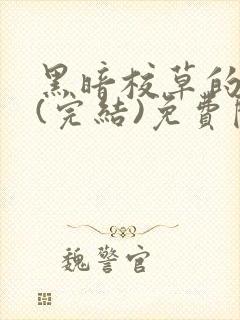 黑暗校草的
(完結)免費
魏警官